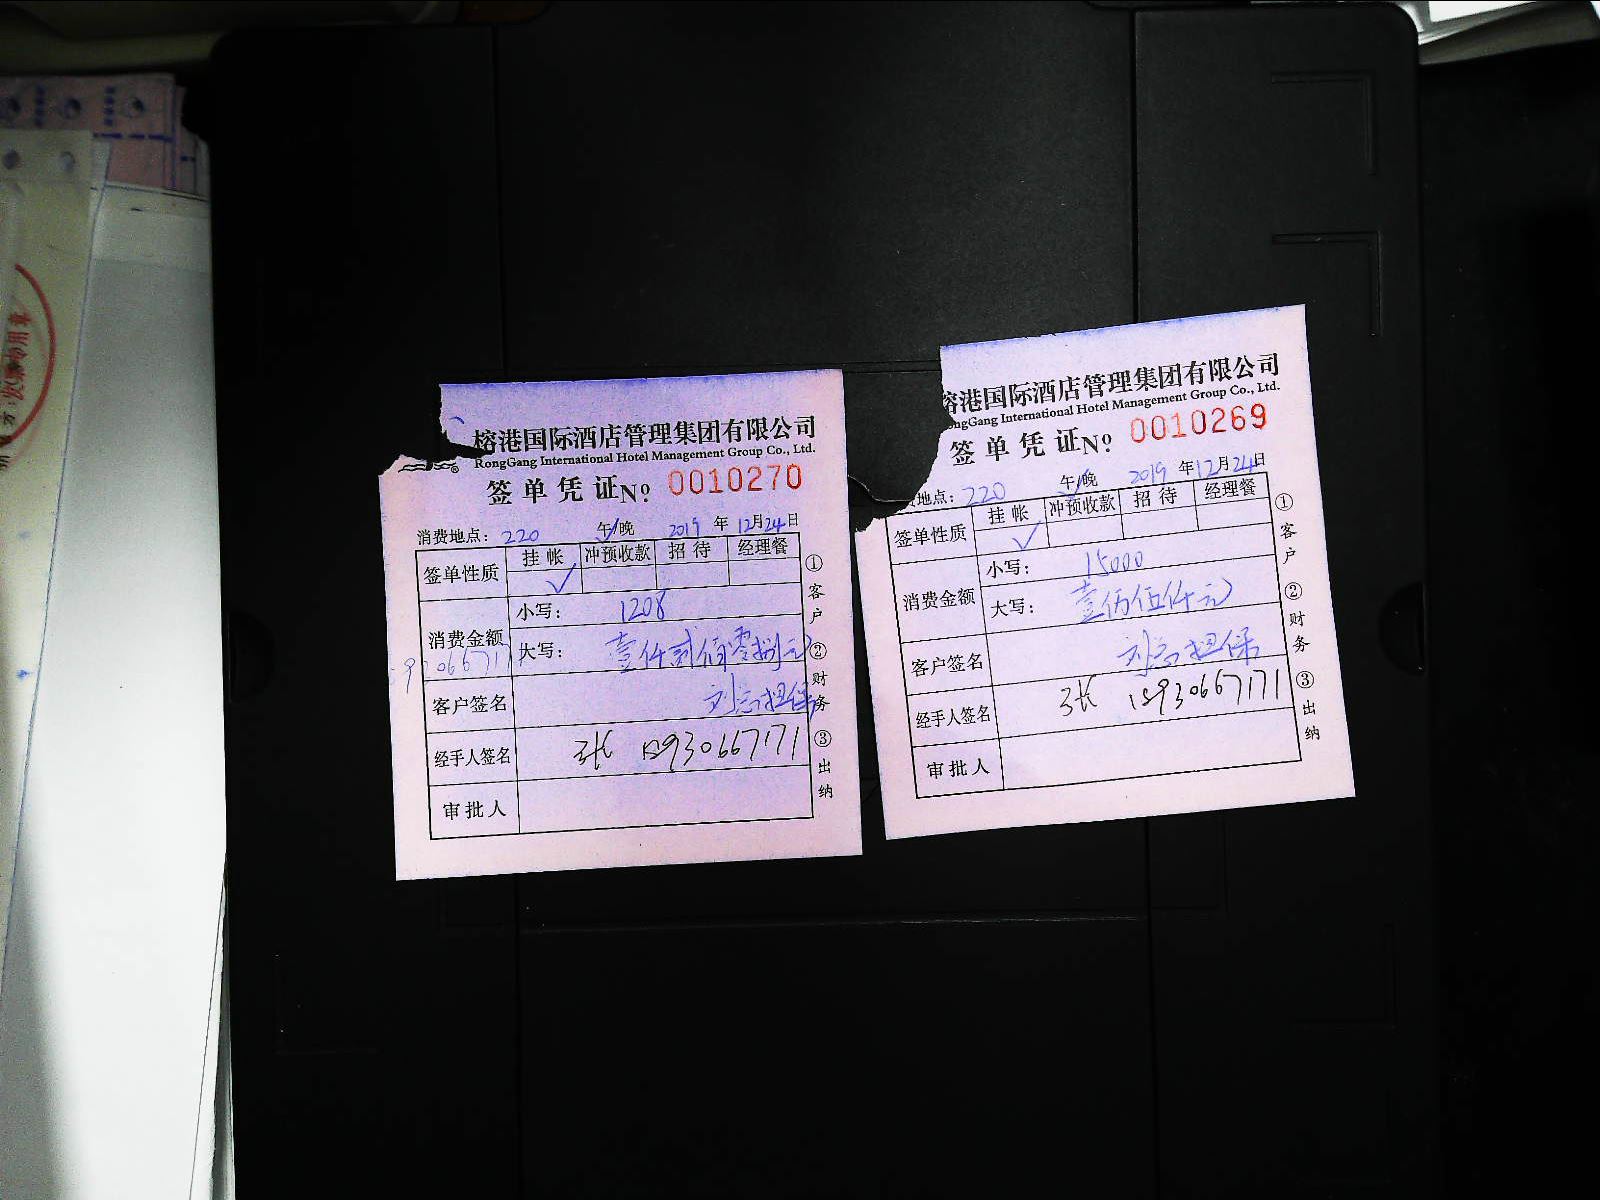 榕港国际酒店管理集团有限公司
RongGang International Hotel Management Group Co., Ltd.
签单凭证 No 0010270
消费地点: 220 午/晚 2019 年 12月24日
签单性质 挂帐 冲预收款 招待 经理餐
✓
消费金额 小写: 1208
大写: 壹仟贰佰零捌元
客户签名 刘总担保
经手人签名 张 15930667171
审批人
① 客户 ② 财务 ③ 出纳
榕港国际酒店管理集团有限公司
ongGang International Hotel Management Group Co., Ltd.
签单凭证 No 0010269
地点: 220 午/晚 2019 年 12月24日
签单性质 挂帐 冲预收款 招待 经理餐
✓
消费金额 小写: 15000
大写: 壹万伍仟元
客户签名 刘总担保
经手人签名 张 15930667171
审批人
① 客户 ② 财务 ③ 出纳